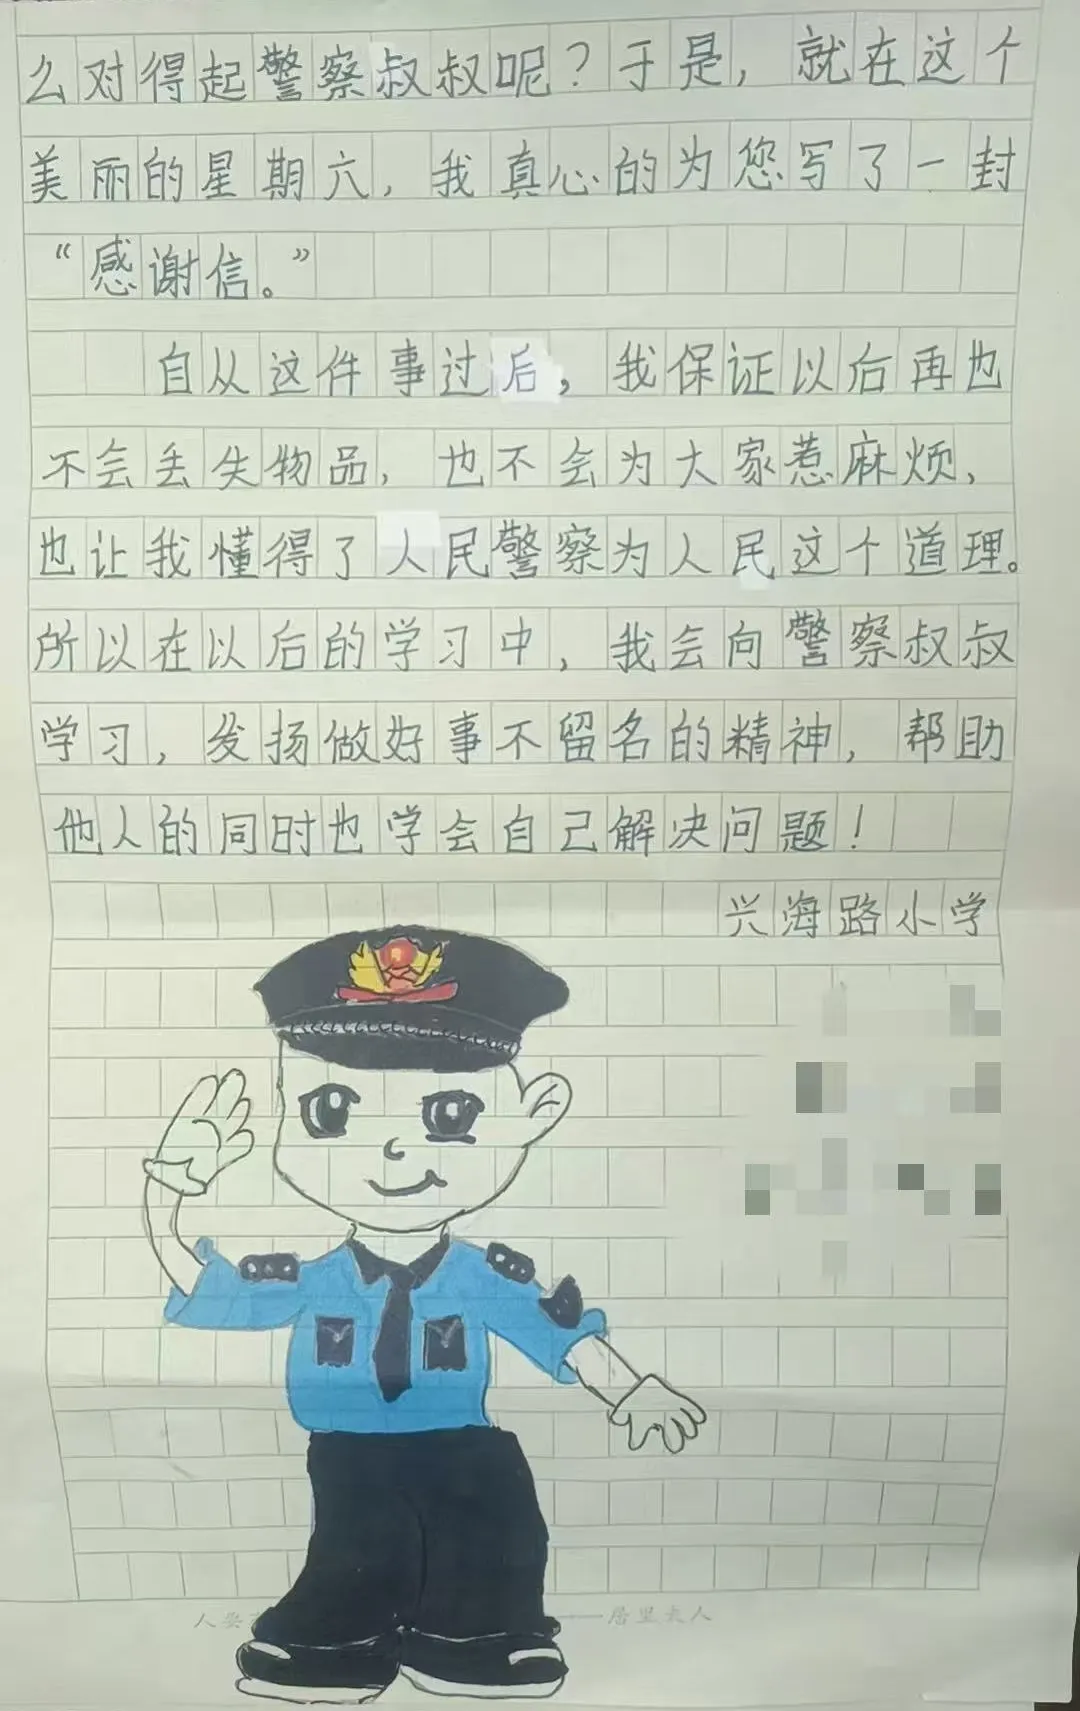 么对得起警察叔叔呢？于是，就在这个
美丽的星期六，我真心的为您写了一封
“感谢信。”
自从这件事过后，我保证以后再也
不会丢失物品，也不会为大家惹麻烦，
也让我懂得了人民警察为人民这个道理。
所以在以后的学习中，我会向警察叔叔
学习，发扬做好事不留名的精神，帮助
他人的同时也学会自己解决问题！
兴海路小学
——居里夫人